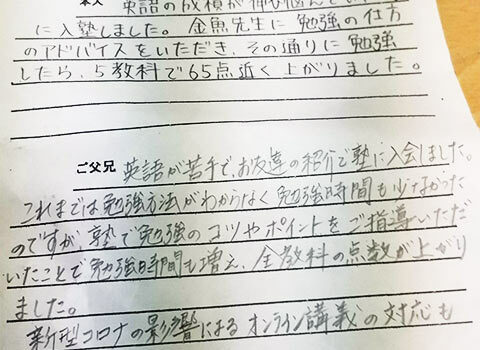 本人 英語の成績が伸び悩んで
に入塾しました。金魚先生に勉強の仕方
のアドバイスをいただき、その通りに勉強
したら、5教科で65点近く上がりました。
ご父兄 英語が苦手で、お友達の紹介で塾に入会しました。
これまでは勉強方法がわからなく勉強時間も少なかった
のですが、塾で勉強のコツやポイントをご指導いただ
いたことで勉強時間も増え、全教科の点数が上がり
ました。
新型コロナの影響によるオンライン講義の対応も